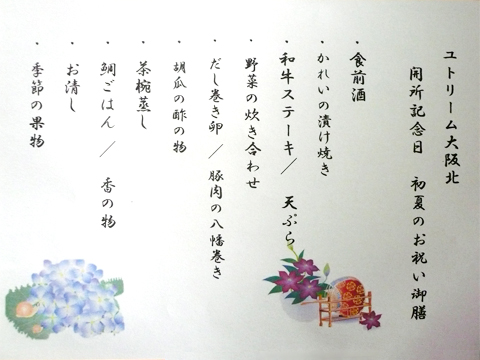 ユトリーム大阪北
開所記念日 初夏のお祝い御膳
・食前酒
・かれいの漬け焼き
・和牛ステーキ/ 天ぷら
・野菜の炊き合わせ
・だし巻き卵/豚肉の八幡巻き
・胡瓜の酢の物
・茶椀蒸し
・鯛ごはん/ 香の物
・お清し
・季節の果物